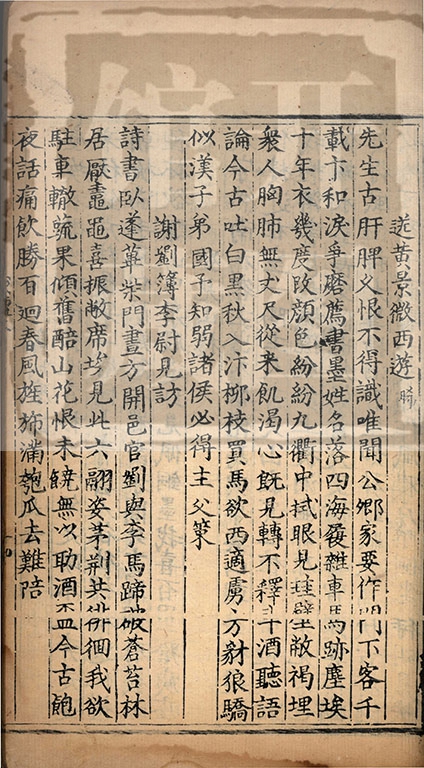 送黄景微西遊
先生古肝脾义恨不得識唯聞公卿家要作門下客千
載卞和淚爭磨薦書墨姓名落四海發雜車馬跡塵埃
十年衣幾度改顔色紛紛九衢中拭眼見珪璧敝褐埋
衆人胸肺無丈尺從来飢渴心既見轉不釋斗酒聽語
論今古吐白黑秋入汴栁枝買馬欲西適虜方豺狼驕
似漢子弟國子知弱諸侯必得主父策
謝劉簿李尉見訪
詩書臥蓬蓽柴門晝方開邑官劉與李馬蹄破蒼苔林
居厭鼃黽喜振敝席埃見此六翮姿茅荆共徘徊我欲
駐車轍蔬果傾舊醅山花恨未饒無以助酒盃皿今古飽
夜話痛飲勝百迴春風旌斾滿匏瓜去難陪